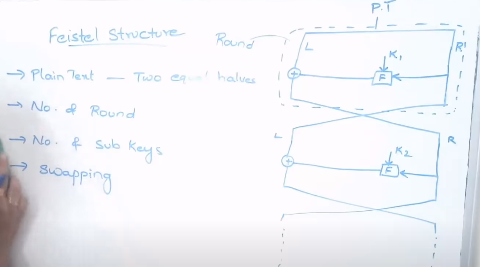 Feistel Structure
→ Plain Text — Two equal halves
→ No. of Round
→ No. of Sub Keys
→ Swapping
P.T
Round
L
R
K1
F
+
L
R
K2
F
+